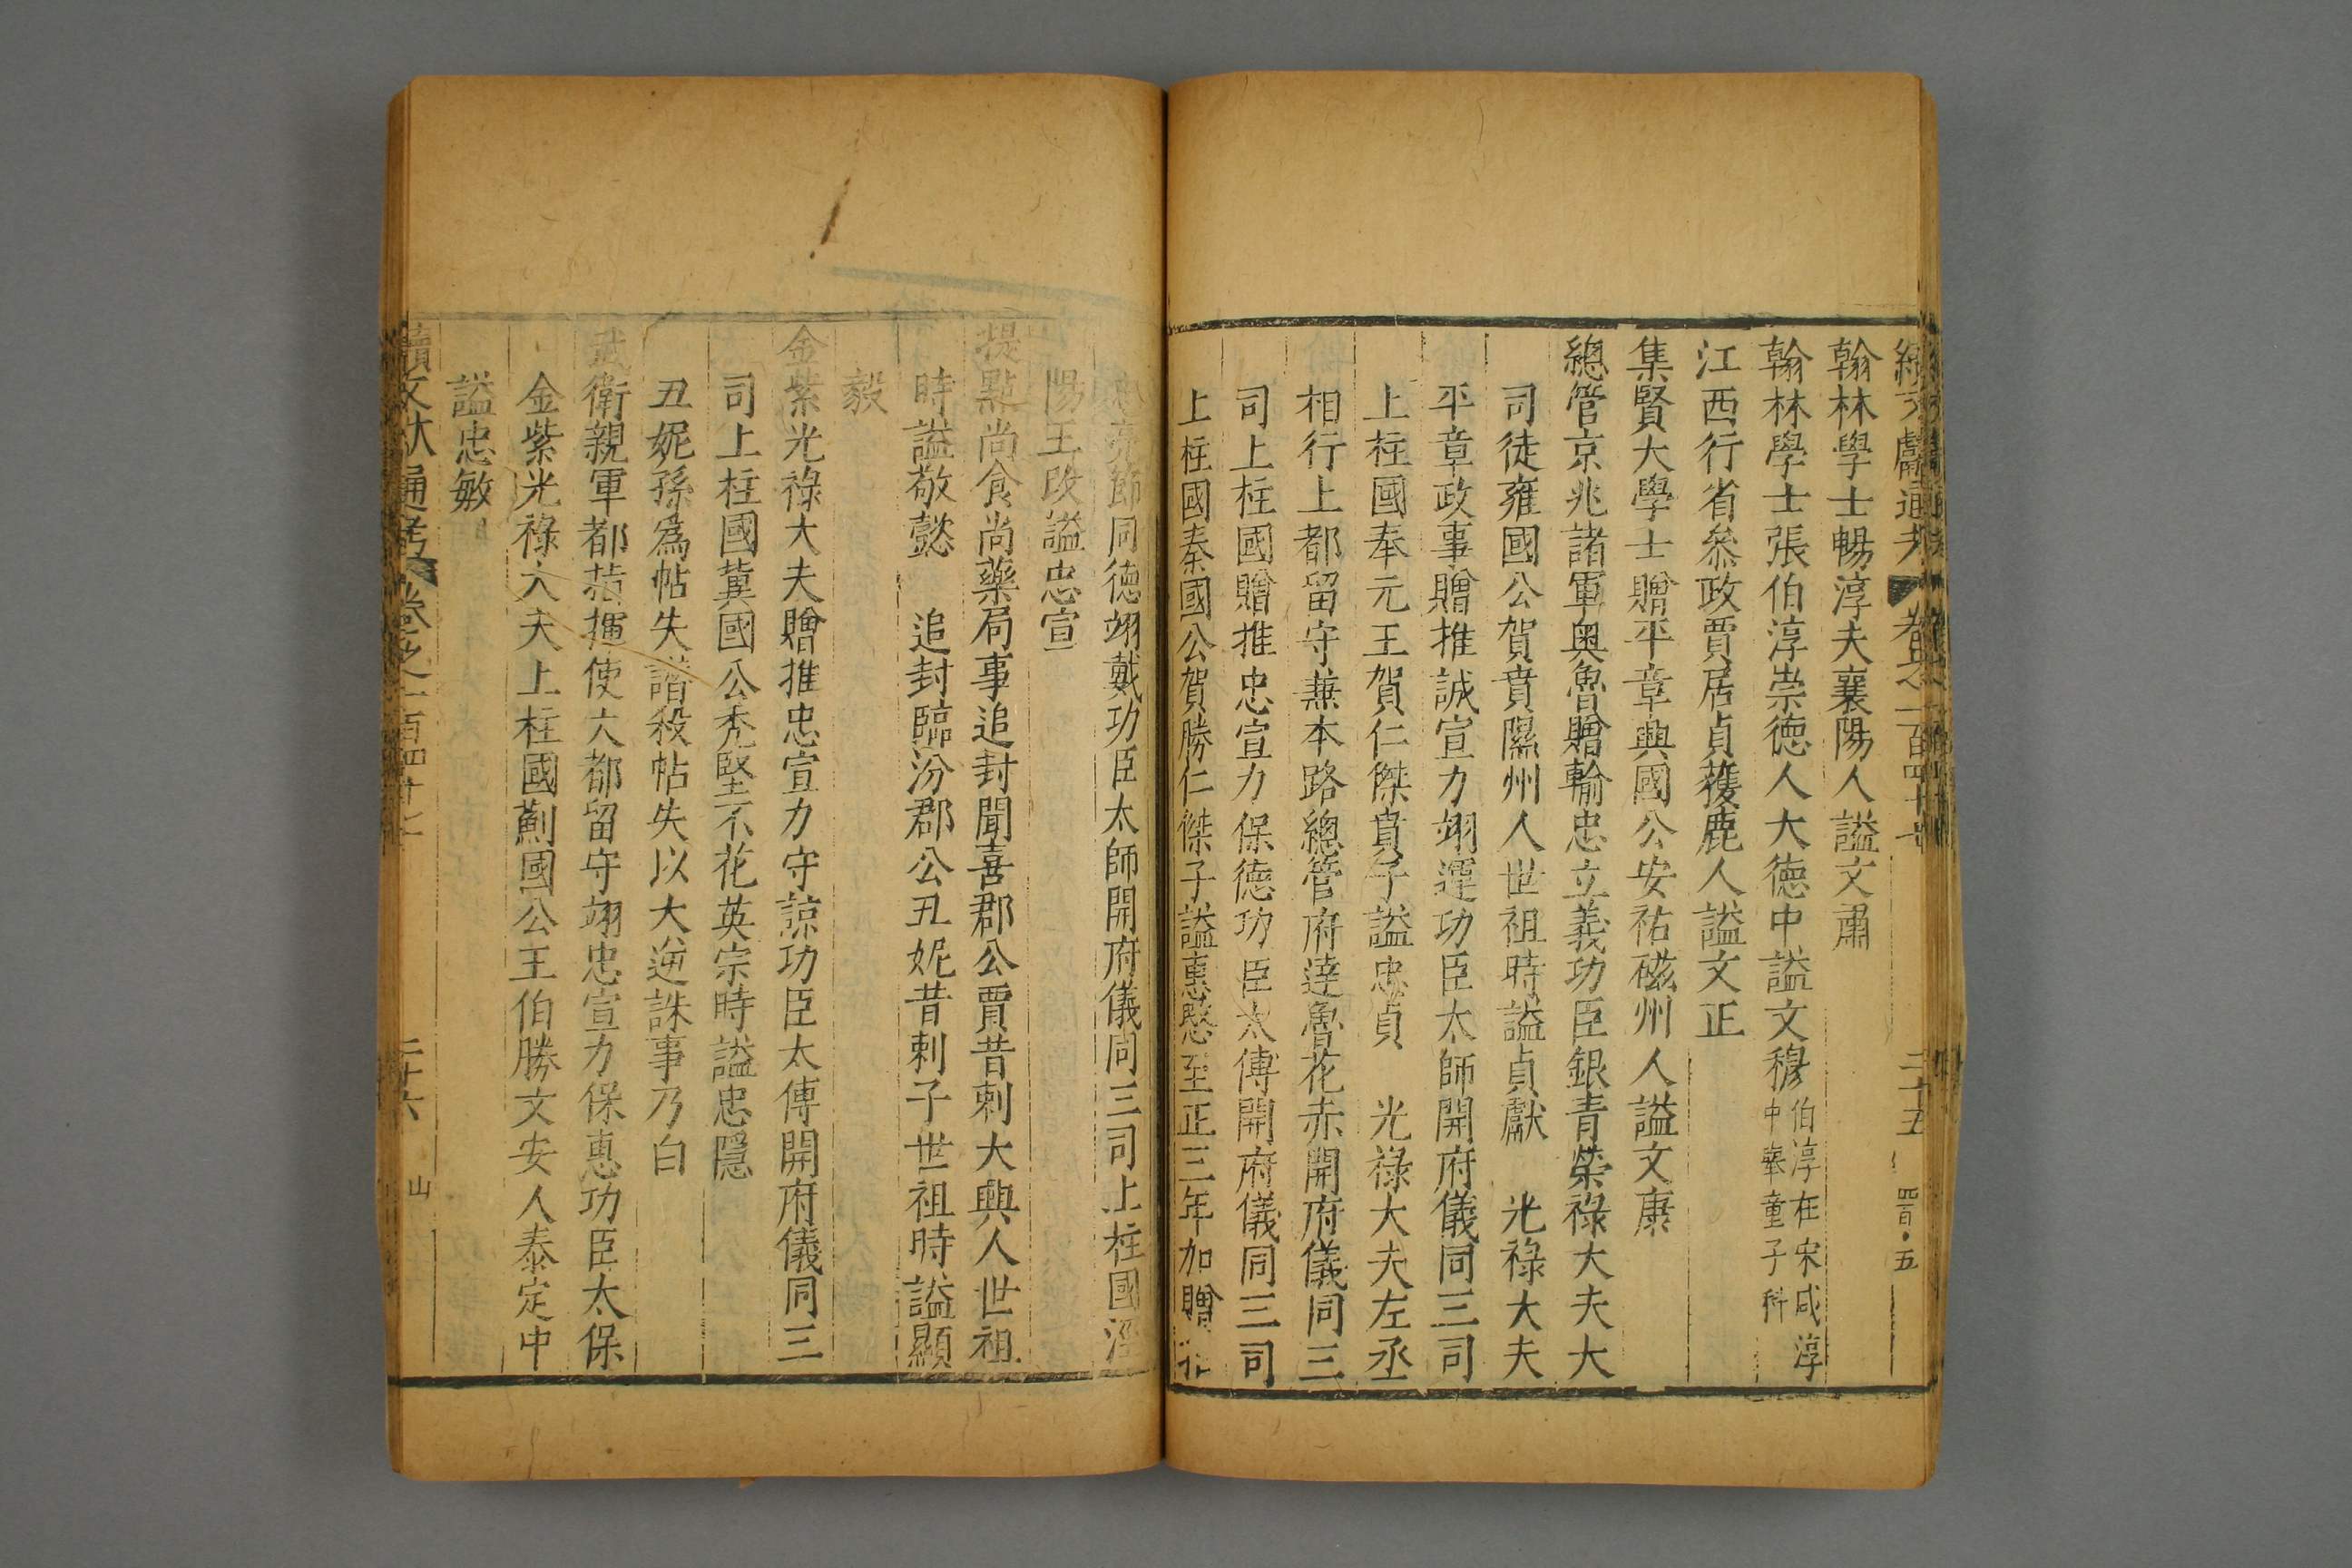 續文獻通考 卷之一百四十七 二十五 四百五
翰林學士暢淳夫襄陽人謚文肅
翰林學士張伯淳崇德人大德中謚文穆伯淳在宋咸淳
中舉童子科
江西行省叅政賈居貞獲鹿人謚文正
集賢大學士贈平章興國公安祐磁州人謚文康
總管京兆諸軍奧魯贈輸忠立義功臣銀青榮祿大夫大
司徒雍國公賀賁隰州人世祖時謚貞獻 光祿大夫
平章政事贈推誠宣力翊運功臣太師開府儀同三司
上柱國奉元王賀仁傑賁子謚忠貞 光祿大夫左丞
相行上都留守兼本路總管府達魯花赤開府儀同三
司上柱國贈推忠宣力保德功臣太傅開府儀同三司
上柱國秦國公賀勝仁傑子謚惠愍至正三年加贈推
忠亮節同德翊戴功臣太師開府儀同三司上柱國涇
陽王改謚忠宣
提點尚食尚藥局事追封聞喜郡公賈昔剌大興人世祖
時謚敬懿 追封臨汾郡公丑妮昔剌子世祖時謚顯
毅
金紫光祿大夫贈推忠宣力守諒功臣太傅開府儀同三
司上柱國冀國公禿堅不花英宗時謚忠隱
丑妮孫爲帖失譖殺帖失以大逆誅事乃白
武衛親軍都指揮使大都留守翊忠宣力保惠功臣太保
金紫光祿大夫上柱國薊國公王伯勝文安人泰定中
謚忠敏
續文獻通考 卷之一百四十七 二十六 山